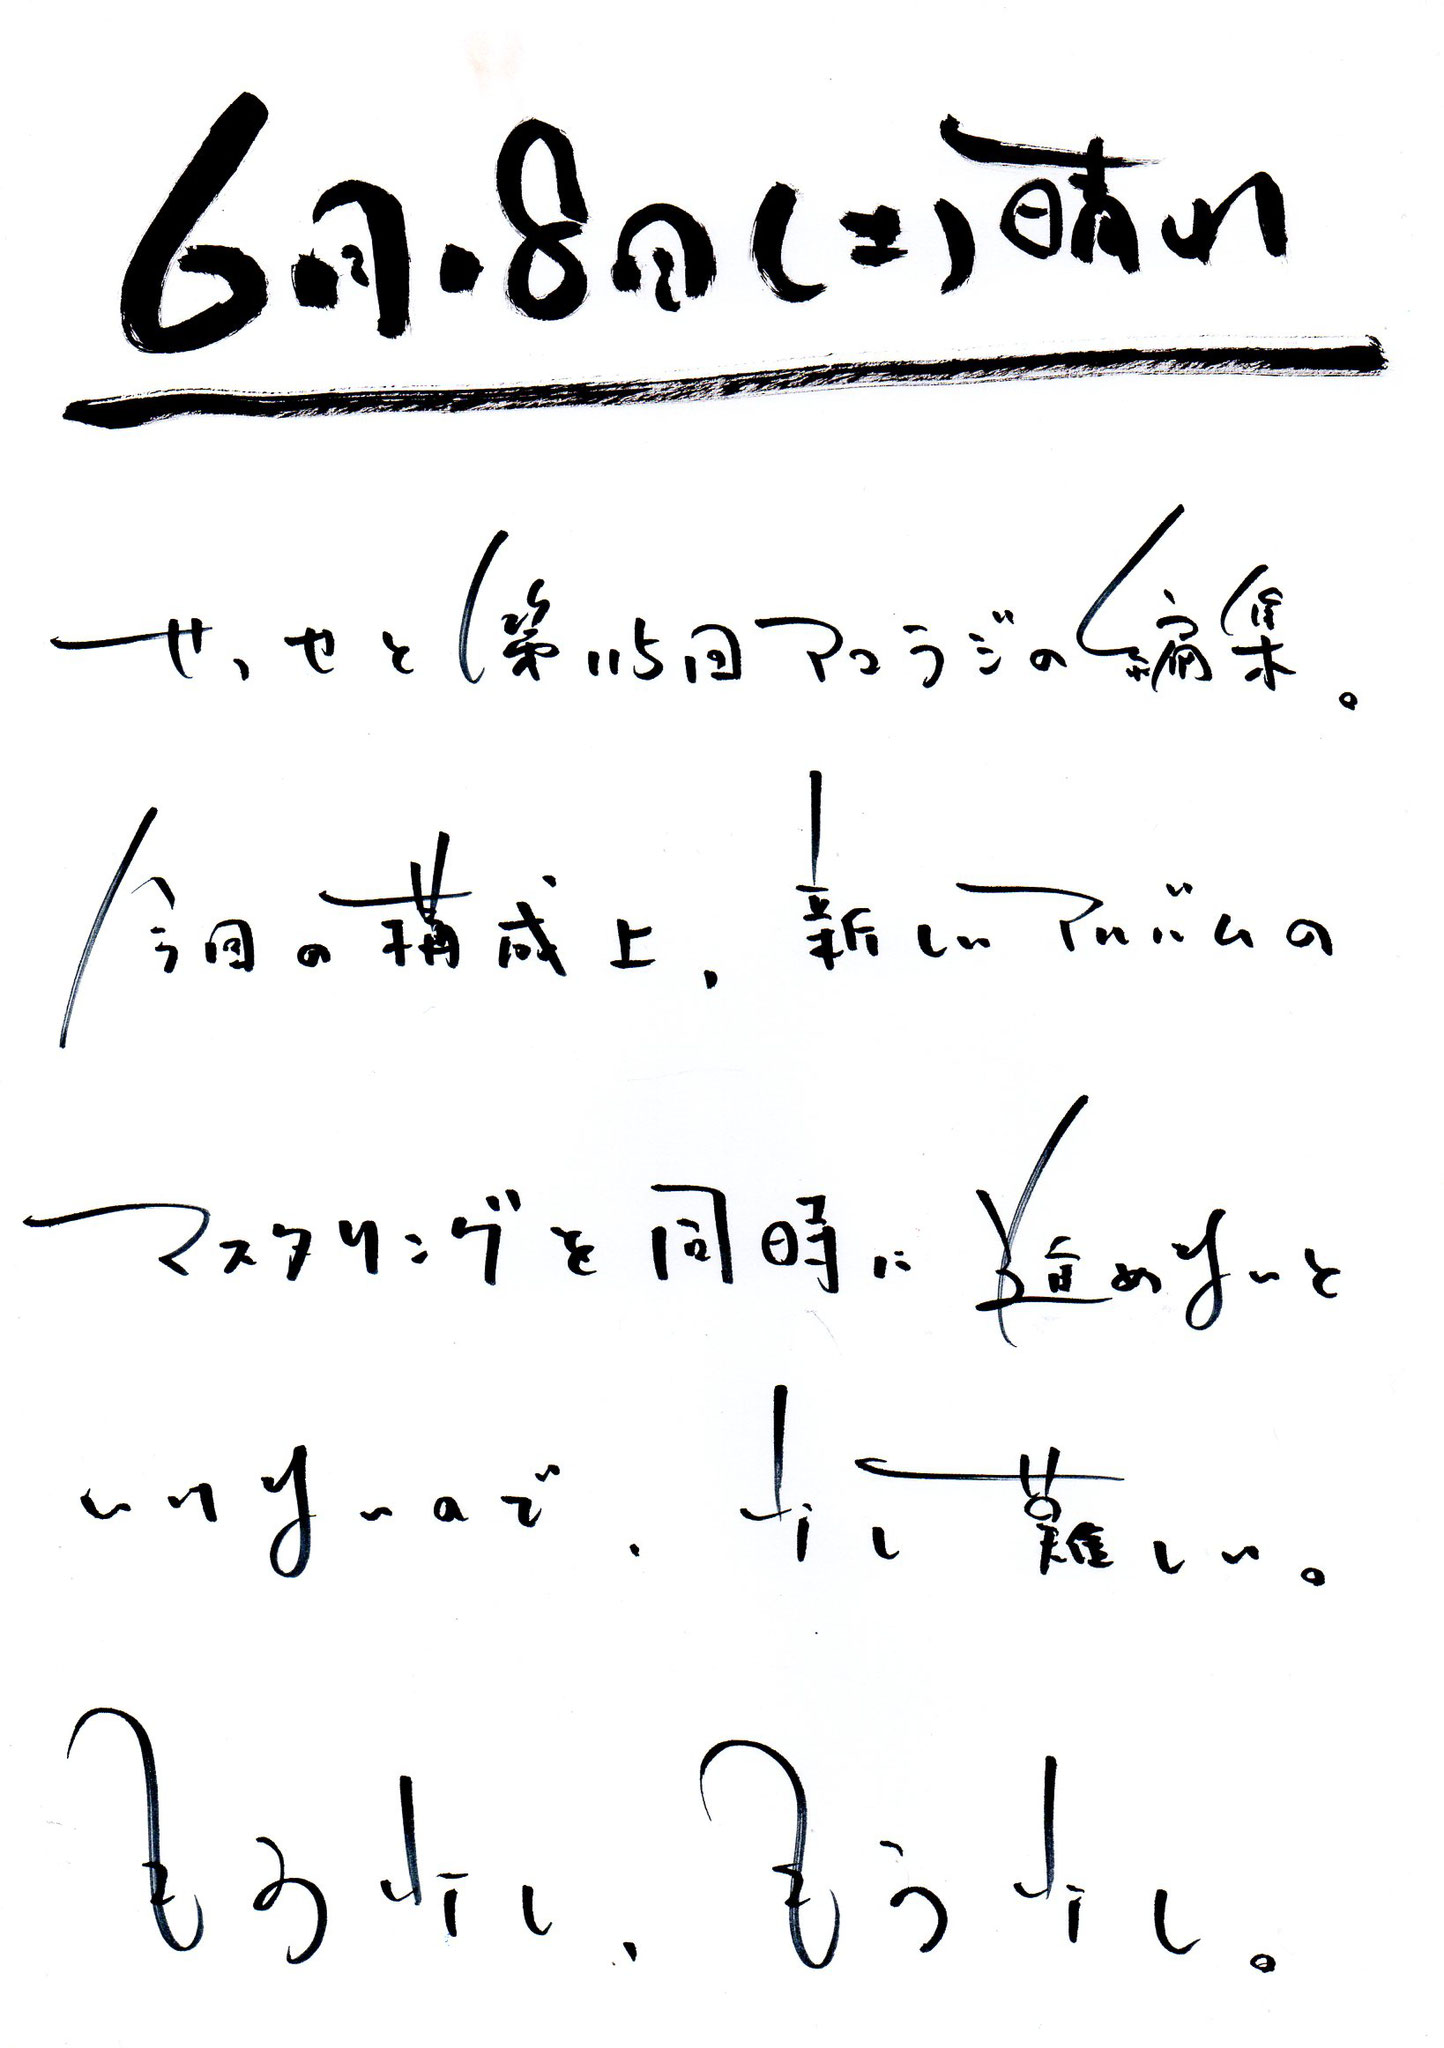 6月.8日(土)晴れ
せっせと第115回アコラジの編集。
今回の構成上、新しいアルバムの
マスタリングを同時に進めないと
いけないので、少し難しい。
もう少し、もう少し。